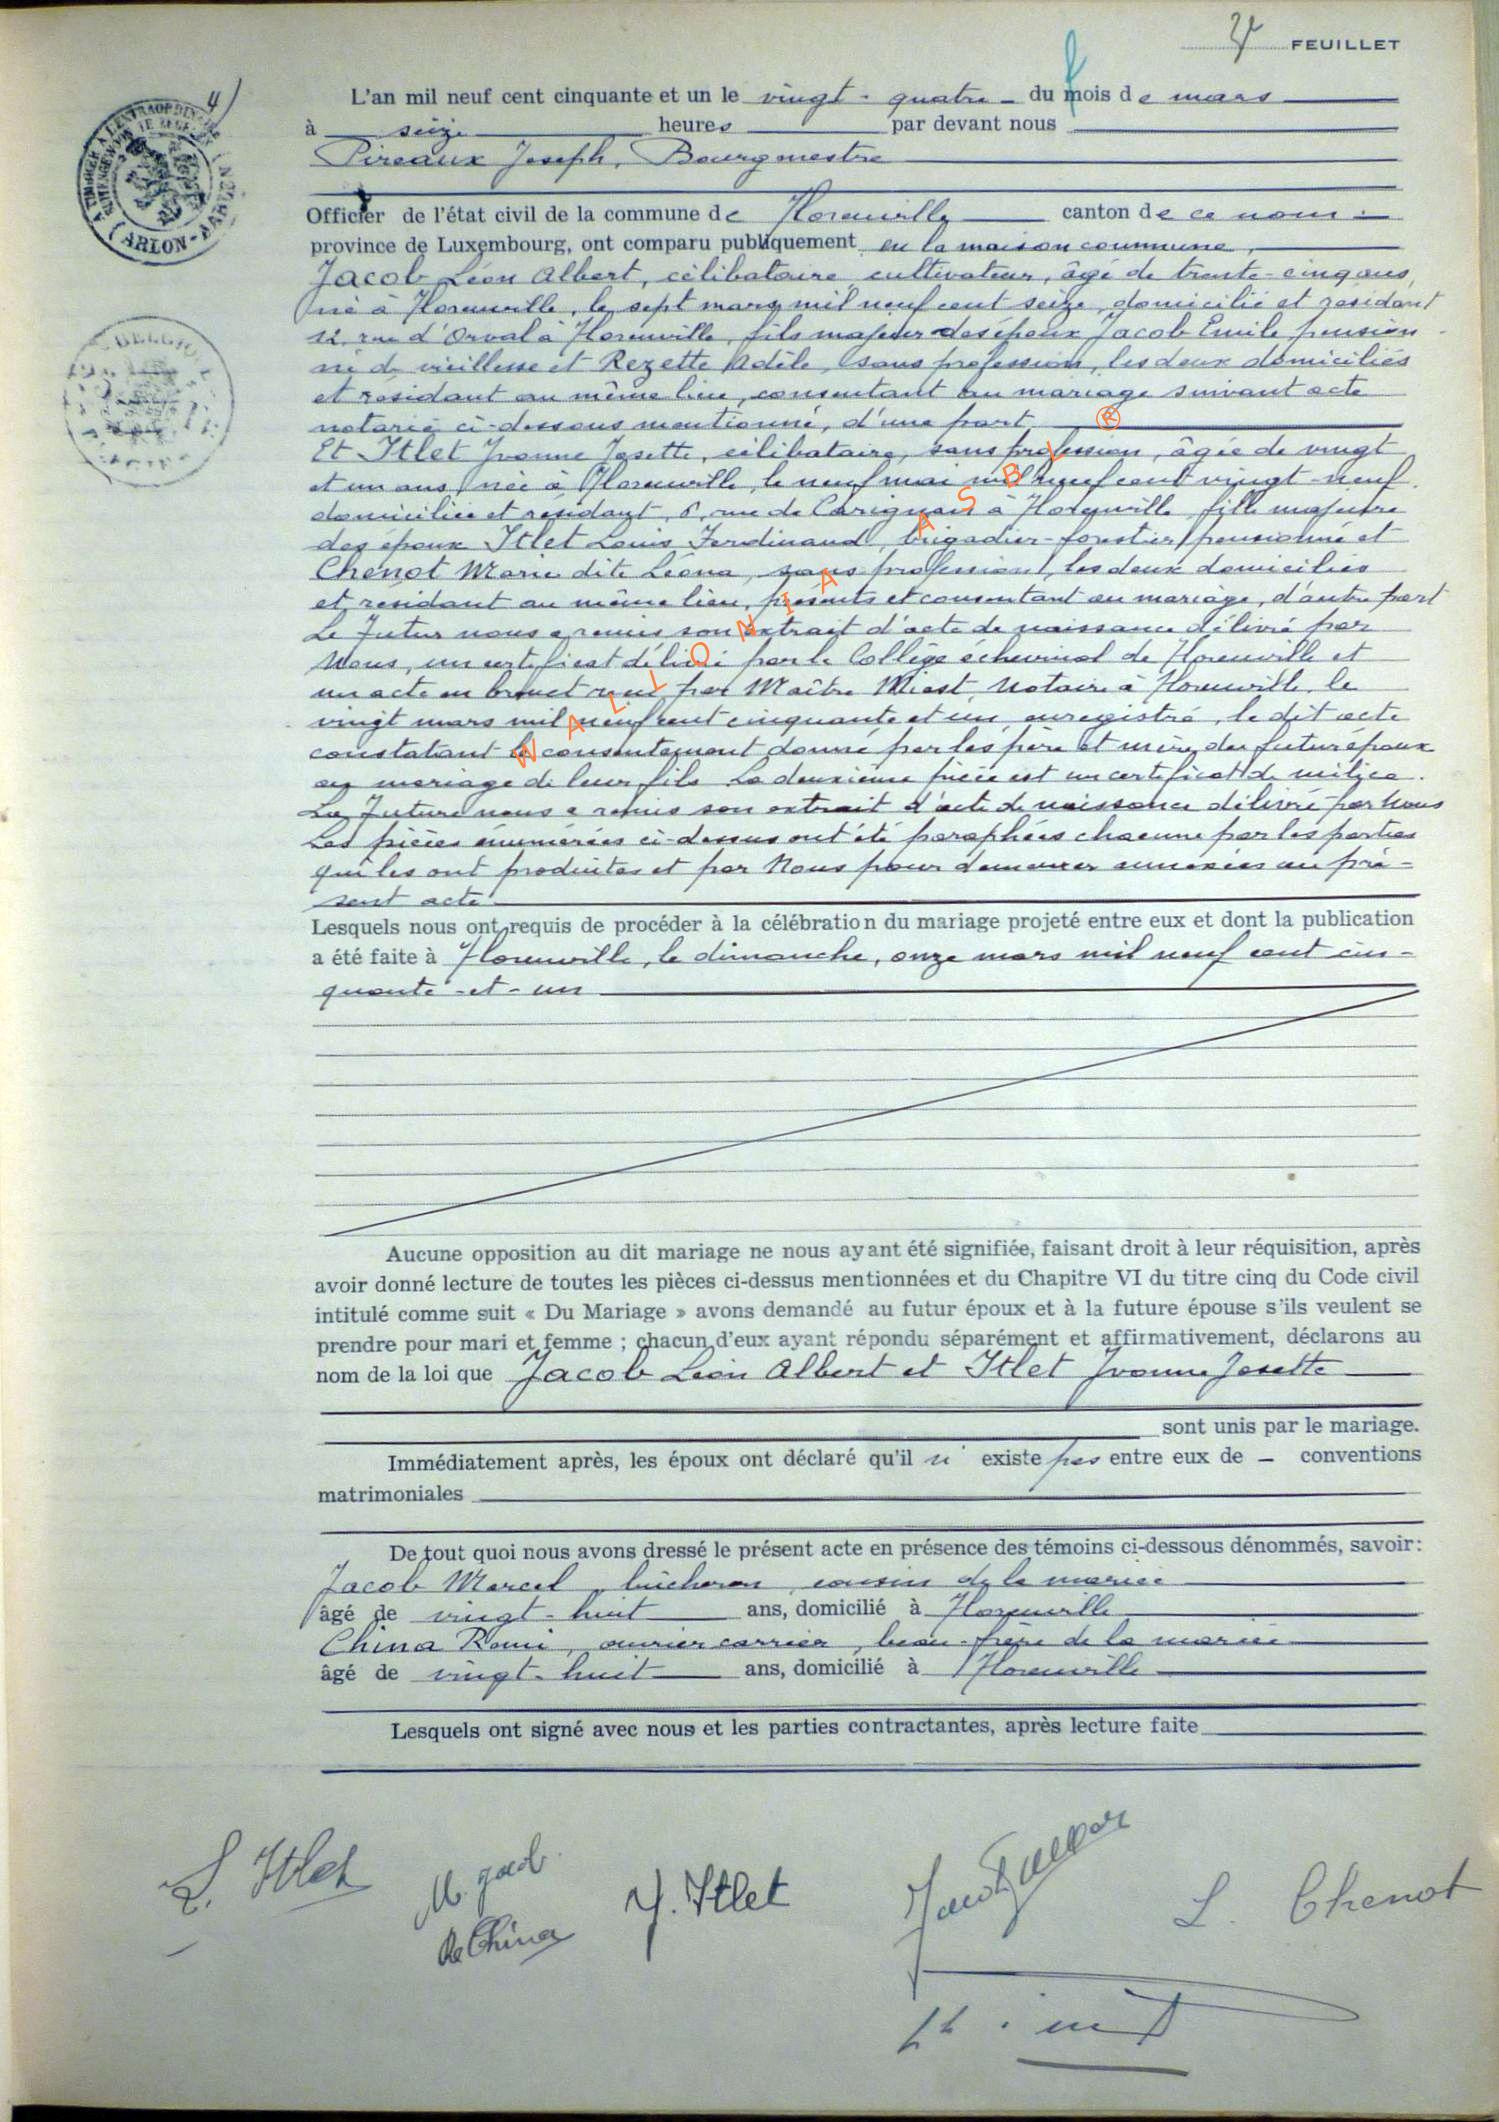 3e FEUILLET
4)
L'an mil neuf cent cinquante et un le vingt-quatre du mois de mars
à seize heures par devant nous
Pireaux Joseph, Bourgmestre
Officier de l'état civil de la commune de Florenville canton de ce nom
province de Luxembourg, ont comparu publiquement en la maison commune,
Jacob Léon Albert, célibataire, cultivateur, âgé de trente-cinq ans,
né à Florenville, le sept mars mil neuf cent seize, domicilié et résidant
12, rue d'Orval à Florenville, fils majeur des époux Jacob Emile, pension-
né de vieillesse et Rezette Adèle, sans profession, les deux domiciliés
et résidant au même lieu, consentant au mariage suivant acte
notarié ci-dessous mentionné, d'une part,
Et Itlet Yvonne Josette, célibataire, sans profession, âgée de vingt
et un ans, née à Florenville, le neuf mai mil neuf cent vingt-neuf,
domiciliée et résidant, 6, rue de Carignan à Florenville, fille majeure
des époux Itlet Louis Ferdinand, brigadier-forestier pensionné et
Chenot Marie dite Léona, sans profession, les deux domiciliés
et résidant au même lieu, présents et consentant au mariage, d'autre part
Le futur nous a remis son extrait d'acte de naissance délivré par
Nous, un certificat délivré par le Collège échevinal de Florenville et
un acte en brevet reçu par Maître Miest, Notaire à Florenville, le
vingt mars mil neuf cent cinquante et un, enregistré, le dit acte
constatant le consentement donné par les père et mère du futur époux
au mariage de leur fils. La deuxième pièce est un certificat de milice.
La future nous a remis son extrait d'acte de naissance délivré par Nous
Les pièces énumérées ci-dessus ont été paraphées chacune par les parties
qui les ont produites et par Nous pour demeurer annexées au pré-
sent acte.
Lesquels nous ont requis de procéder à la célébration du mariage projeté entre eux et dont la publication
a été faite à Florenville, le dimanche, onze mars mil neuf cent cin-
quante-et-un
Aucune opposition au dit mariage ne nous ayant été signifiée, faisant droit à leur réquisition, après
avoir donné lecture de toutes les pièces ci-dessus mentionnées et du Chapitre VI du titre cinq du Code civil
intitulé comme suit « Du Mariage » avons demandé au futur époux et à la future épouse s'ils veulent se
prendre pour mari et femme ; chacun d'eux ayant répondu séparément et affirmativement, déclarons au
nom de la loi que Jacob Léon Albert et Itlet Yvonne Josette
sont unis par le mariage.
Immédiatement après, les époux ont déclaré qu'il n' existe pas entre eux de – conventions
matrimoniales
De tout quoi nous avons dressé le présent acte en présence des témoins ci-dessous dénommés, savoir:
Jacob Marcel, bûcheron, cousin de la mariée
âgé de vingt-huit ans, domicilié à Florenville
China Remi, ouvrier carrier, beau-frère de la mariée
âgé de vingt-huit ans, domicilié à Florenville
Lesquels ont signé avec nous et les parties contractantes, après lecture faite
L. Itlet
M. Jacob
Y. Itlet
L. Chenot
Re China
WALLONIA ASBL ®
ARLON-AARLEN